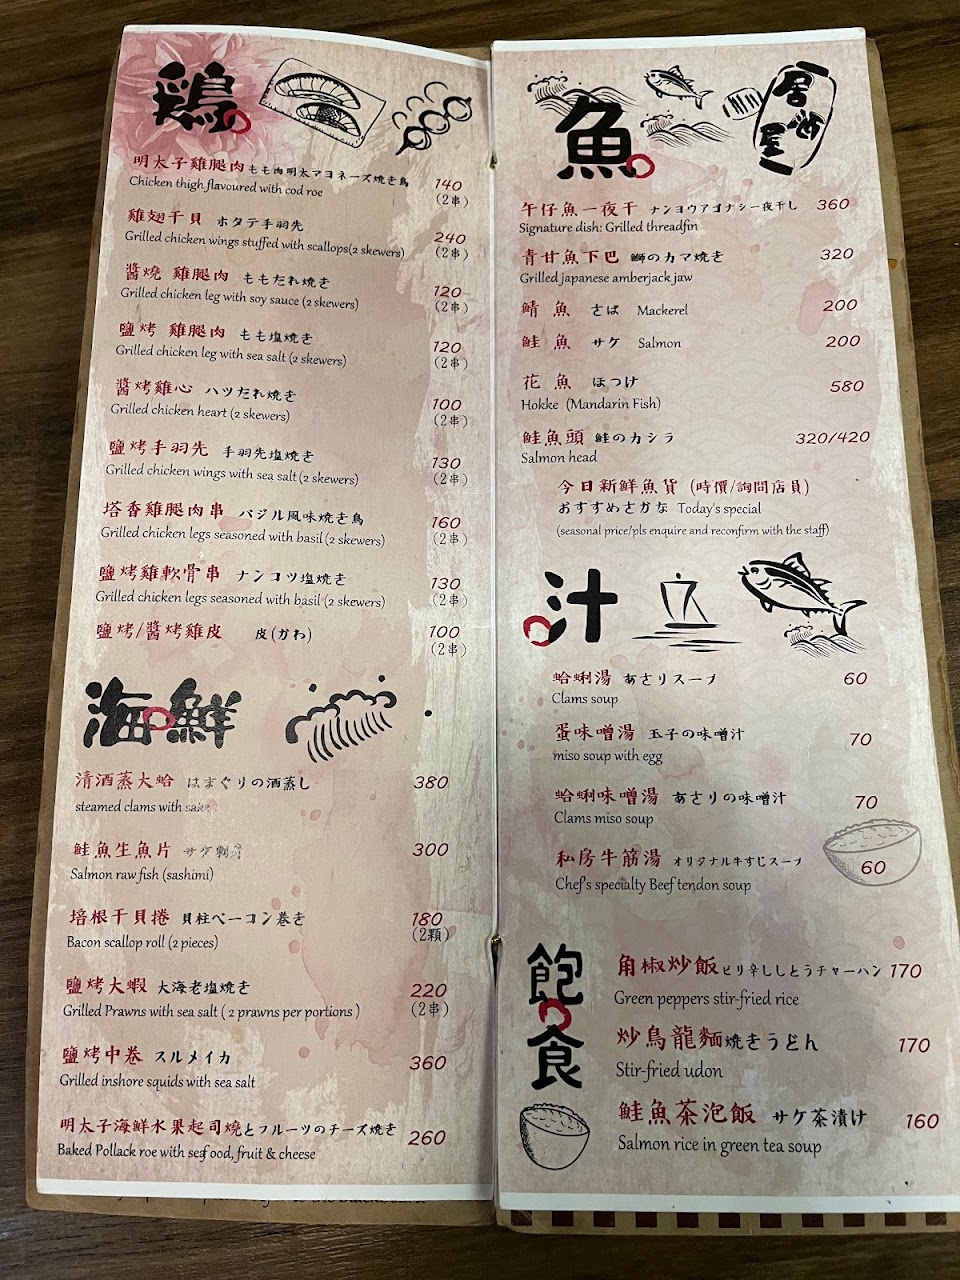 鶏
明太子雞腿肉 もも肉明太マヨネーズ焼き鳥 140
Chicken thigh flavoured with cod roe (2串)
雞翅干貝 ホタテ手羽先 240
Grilled chicken wings stuffed with scallops(2 skewers) (2串)
醬燒 雞腿肉 ももたれ焼き 120
Grilled chicken leg with soy sauce (2 skewers) (2串)
鹽烤 雞腿肉 もも塩焼き 120
Grilled chicken leg with sea salt (2 skewers) (2串)
醬烤雞心 ハツたれ焼き 100
Grilled chicken heart (2 skewers) (2串)
鹽烤手羽先 手羽先塩焼き 130
Grilled chicken wings with sea salt (2 skewers) (2串)
塔香雞腿肉串 バジル風味焼き鳥 160
Grilled chicken legs seasoned with basil (2 skewers) (2串)
鹽烤雞軟骨串 ナンコツ塩焼き 130
Grilled chicken legs seasoned with basil (2 skewers) (2串)
鹽烤/醬烤雞皮 皮(かわ) 100
(2串)
海鮮
清酒蒸大蛤 はまぐりの酒蒸し 380
steamed clams with sake
鮭魚生魚片 サケ刺身 300
Salmon raw fish (sashimi)
培根干貝捲 貝柱ベーコン巻き 180
Bacon scallop roll (2 pieces) (2顆)
鹽烤大蝦 大海老塩焼き 220
Grilled Prawns with sea salt ( 2 prawns per portions ) (2串)
鹽烤中卷 スルメイカ 360
Grilled inshore squids with sea salt
明太子海鮮水果起司燒とフルーツのチーズ焼き 260
Baked Pollack roe with seafood, fruit & cheese
魚
居酒屋
午仔魚一夜干 ナンヨウアゴナシ一夜干し 360
Signature dish: Grilled threadfin
青甘魚下巴 鰤のカマ焼き 320
Grilled japanese amberjack jaw
鯖 魚 さば Mackerel 200
鮭 魚 サケ Salmon 200
花 魚 ほつけ 580
Hokke (Mandarin Fish)
鮭魚頭 鮭のカシラ 320/420
Salmon head
今日新鮮魚貨 (時價/詢問店員)
おすすめさかな Today's special
(seasonal price/pls enquire and reconfirm with the staff)
汁
蛤蜊湯 あさりスープ 60
Clams soup
蛋味噌湯 玉子の味噌汁 70
miso soup with egg
蛤蜊味噌湯 あさりの味噌汁 70
Clams miso soup
私房牛筋湯 オリジナル牛すじスープ 60
Chef's specialty Beef tendon soup
飽食
角椒炒飯ピリ辛ししとうチャーハン 170
Green peppers stir-fried rice
炒烏龍麵焼きうどん 170
Stir-fried udon
鮭魚茶泡飯 サケ茶漬け 160
Salmon rice in green tea soup